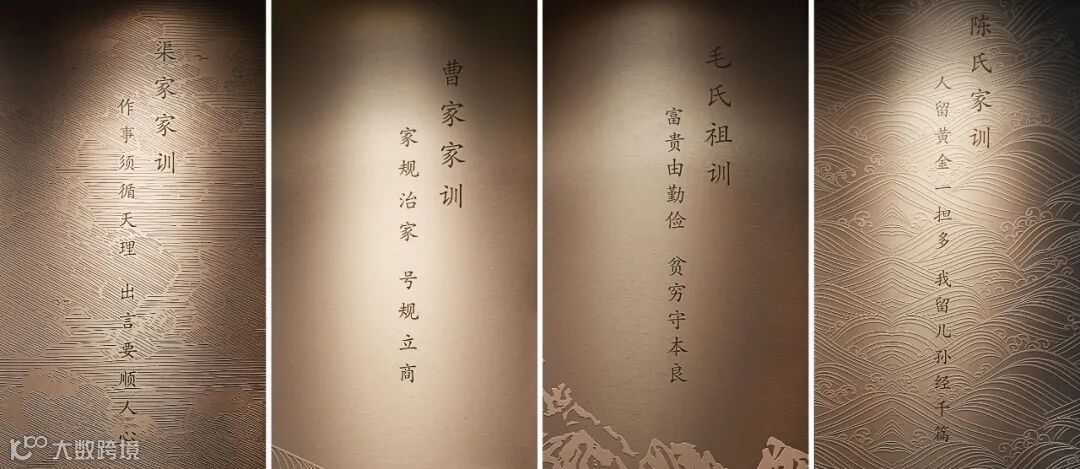 渠家家训
作事须循天理 出言要顺人心
曹家家训
家规治家 号规立商
毛氏祖训
富贵由勤俭 贫穷守本良
陈氏家训
人留黄金一担多 我留儿孙经千篇
大数跨境